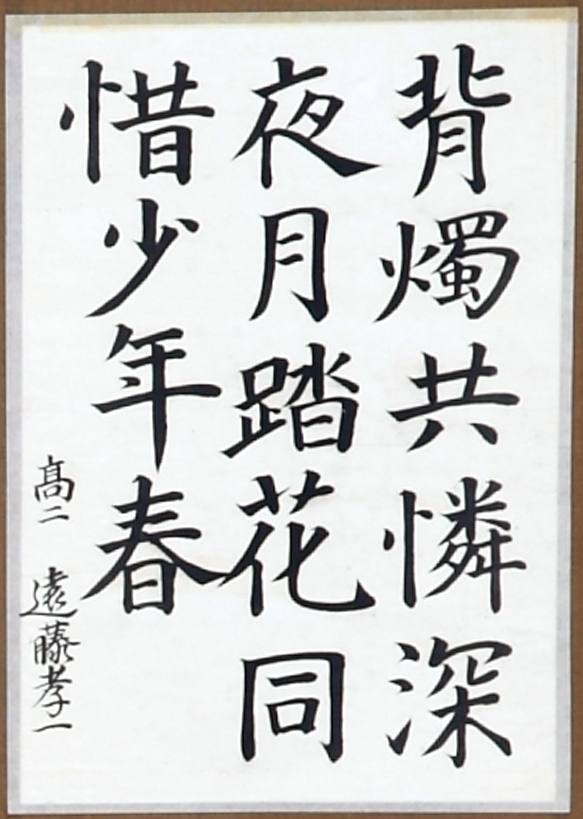 背燭共憐深
夜月踏花同
惜少年春
高二 遠藤孝一